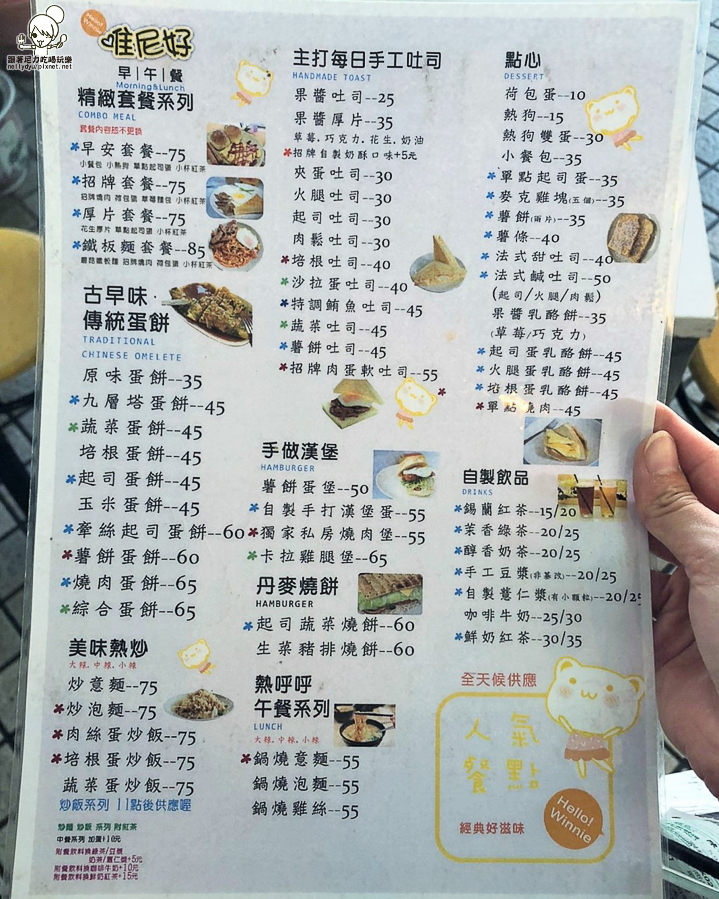 跟著尼力吃喝玩樂
nellydyu.pixnet.net
Hello!
Winnie
唯尼好
早|午|餐
Morning&Lunch
精緻套餐系列
COMBO MEAL
套餐內容恕不更換
早安套餐--75
小餐包 小熱狗 單點起司蛋 小杯紅茶
招牌套餐--75
招牌燒肉 荷包蛋 草莓麵包 小杯紅茶
厚片套餐--75
花生厚片 單點起司蛋 小杯紅茶
鐵板麵套餐--85
蘑菇鐵板麵 招牌燒肉 荷包蛋 小杯紅茶
古早味
傳統蛋餅
TRADITIONAL
CHINESE OMELETE
原味蛋餅--35
九層塔蛋餅--45
蔬菜蛋餅--45
培根蛋餅--45
起司蛋餅--45
玉米蛋餅--45
牽絲起司蛋餅--60
薯餅蛋餅--60
燒肉蛋餅--65
綜合蛋餅--65
美味熱炒
大辣.中辣.小辣
炒意麵--75
炒泡麵--75
肉絲蛋炒飯--75
培根蛋炒飯--75
蔬菜蛋炒飯--75
炒飯系列 11點後供應喔
炒麵 炒飯 系列 附紅茶
中餐系列 加蛋+10元
附餐飲料換綠茶/豆漿
奶茶/薏仁漿+5元
附餐飲料換咖啡牛奶+10元
附餐飲料換鮮奶紅茶+15元
主打每日手工吐司
HANDMADE TOAST
果醬吐司--25
果醬厚片--35
草莓.巧克力.花生.奶油
招牌自製奶酥口味+5元
夾蛋吐司--30
火腿吐司--30
起司吐司--30
肉鬆吐司--30
培根吐司--40
沙拉蛋吐司--40
特調鮪魚吐司--45
蔬菜吐司--45
薯餅吐司--45
招牌肉蛋軟吐司--55
手做漢堡
HAMBURGER
薯餅蛋堡--50
自製手打漢堡蛋--55
獨家私房燒肉堡--55
卡拉雞腿堡--65
丹麥燒餅
HAMBURGER
起司蔬菜燒餅--60
生菜豬排燒餅--60
熱呼呼
午餐系列
LUNCH
大辣.中辣.小辣
鍋燒意麵--55
鍋燒泡麵--55
鍋燒雞絲--55
點心
DESSERT
荷包蛋--10
熱狗--15
熱狗雙蛋--30
小餐包--35
單點起司蛋--35
麥克雞塊(五個)--35
薯餅(兩片)--35
薯條--40
法式甜吐司--40
法式鹹吐司--50
(起司/火腿/肉鬆)
果醬乳酪餅--35
(草莓/巧克力)
起司蛋乳酪餅--45
火腿蛋乳酪餅--45
培根蛋乳酪餅--45
單點燒肉--45
自製飲品
DRINKS
錫蘭紅茶--15/20
茉香綠茶--20/25
醇香奶茶--20/25
手工豆漿(非基改)--20/25
自製薏仁漿(有小顆粒)--20/25
咖啡牛奶--25/30
鮮奶紅茶--30/35
全天候供應
人氣
餐點
經典好滋味
Hello!
Winnie